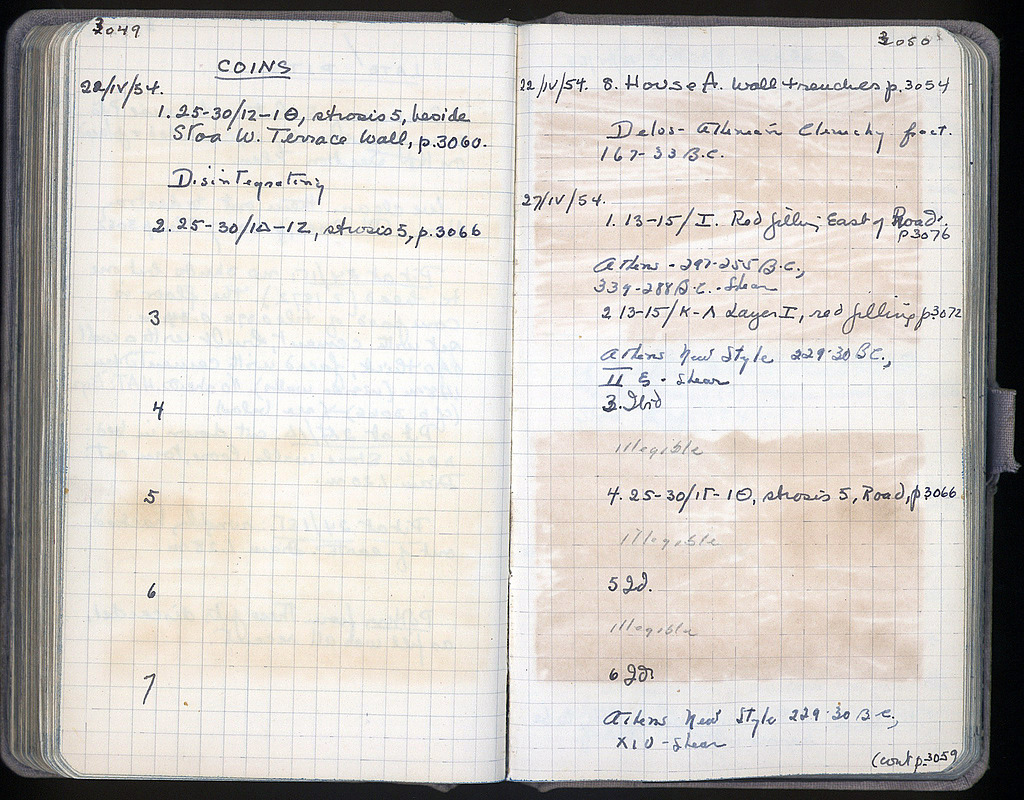 3049
COINS
22/IV/54.
1. 25-30/12-1Θ, strosis 5, beside
Stoa W. Terrace Wall, p.3060.
Disintegrating
2. 25-30/1Δ-1Z, strosis 5, p.3066
3
4
5
6
7
3050
22/IV/54. 8. House A. Wall trenches p.3054
Delos - Athenian Cleruchy fract.
167-33 B.C.
27/IV/54.
1. 13-15/I. Red filling East of Road,
p3076
Athens - 297-255 B.C.,
339-288 B.C. - Shear
2 13-15/K-Λ Layer I, red filling p3072
Athens New Style 229-30 B.C.,
II - Shear
3. Ibid
Illegible
4. 25-30/1Γ-1Θ, strosis 5, Road, p3066
Illegible
5 Id.
Illegible
6 Id.
Athens New Style 229-30 B.C.,
- Shear
(cont p.3059